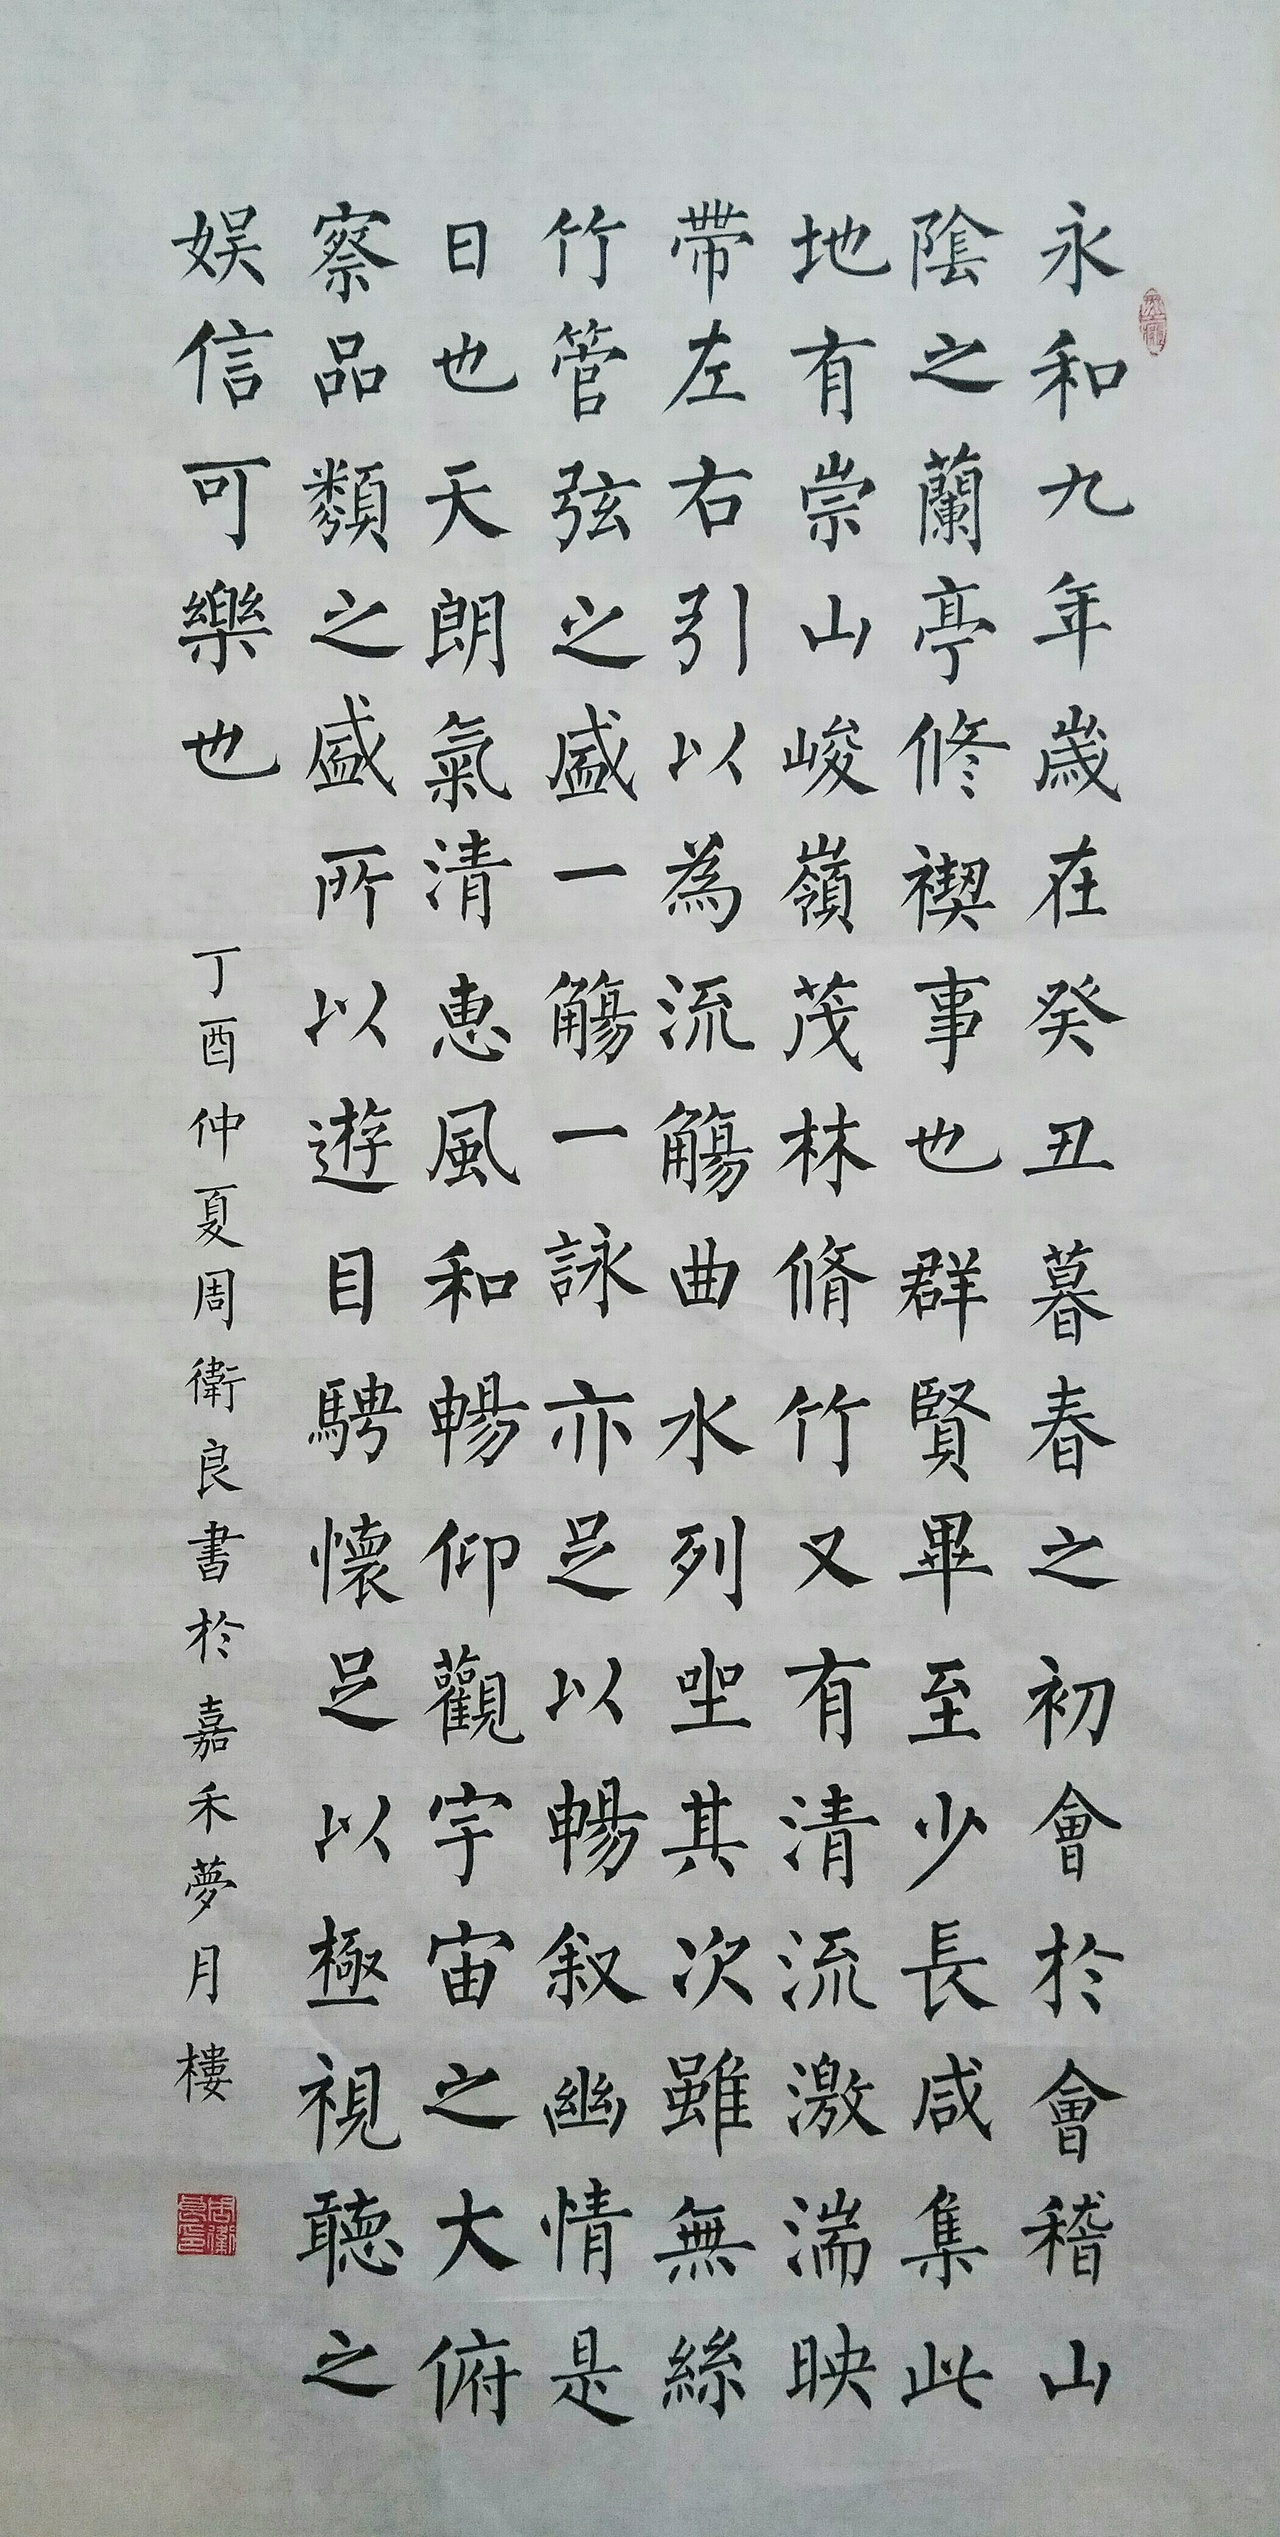 永和九年歲在癸丑暮春之初會於會稽山
陰之蘭亭修禊事也群賢畢至少長咸集此
地有崇山峻嶺茂林脩竹又有清流激湍映
帶左右引以為流觴曲水列坐其次雖無絲
竹管弦之盛一觴一詠亦足以暢叙幽情是
日也天朗氣清惠風和暢仰觀宇宙之大俯
察品類之盛所以遊目騁懷足以極視聽之
娱信可樂也
丁酉仲夏周衛良書於嘉禾夢月樓
周衛良印